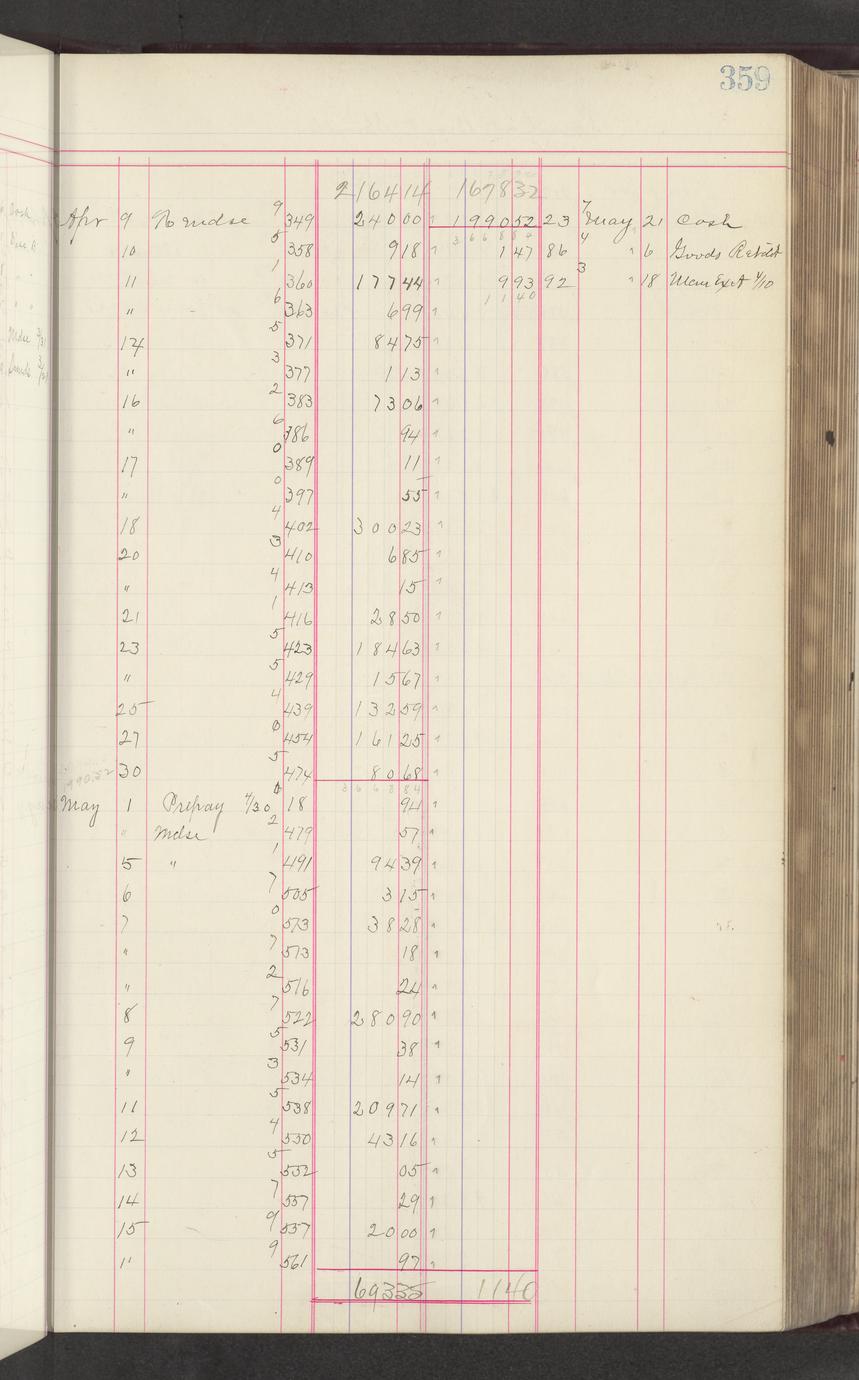 359
216414 167832
Apr 9 To mdse 9 349 24000 199052 23 7 May 21 Cash
366884
10 5 358 918 147 86 4 " 6 Goods Retd
11 1 360 17744 993 92 3 " 18 Man Exp 4/10
1140
" 6 363 699
14 5 371 8475
" 3 377 113
16 2 383 7306
" 6 386 94
17 0 389 11
" 0 397 55
18 4 402 30023
20 3 410 685
" 4 413 15
21 1 416 2850
23 5 423 18463
" 5 429 1567
25 4 439 13259
27 0 454 16125
30 5 474 8068
366884
May 1 Prepay 4/30 18 94
" Mdse 2 479 57
5 " 1 491 9439
6 7 505 315
7 0 513 3828
" 7 513 18
" 2 516 24
8 7 522 28090
9 5 531 38
" 3 534 14
11 5 538 20971
12 4 550 4316
13 5 552 05
14 7 557 29
15 9 557 2000
" 9 561 97
69335 1140